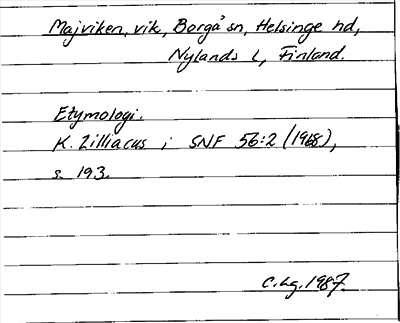 Majviken, vik, Borgå sn, Helsinge hd,
Nylands l, Finland.
Etymologi.
K. Zilliacus i SNF 56:2 (1968),
s. 193.
C.Lg. 1987.